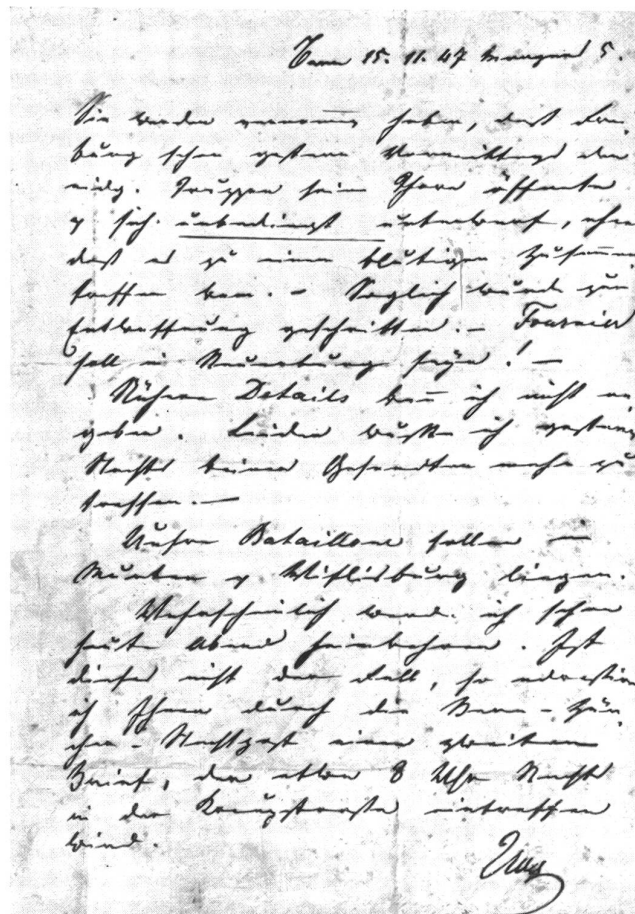 Bern 15. 11. 47 morgens 5.
Sie werden vernommen haben, daß Frei-
burg schon gestern Vormittags den
eidg. Truppen seine Thore öffnete
& sich unbedingt unterwarf, ohne
daß es zu einem blutigen Zusammen-
treffen kam. – Sogleich wurde zur
Entwaffnung geschritten. – Fournier
soll in Neuenburg seyn! –
Nähere Details kann ich nicht an-
geben. Leider wußte ich gestern
Nachts keinen Gesandten mehr zu
treffen. –
Unsre Bataillone sollen in
Murten & Wiflisburg liegen.
Wahrscheinlich werde ich schon
heute Abend heimkehren. Ist
dieses nicht der Fall, so adressire
ich Ihnen durch die Bern-Zür-
cher-Nachtpost einen zweiten
Brief, der etwa 8 Uhr Nachts
in der Kreuzstrasse eintreffen
wird.